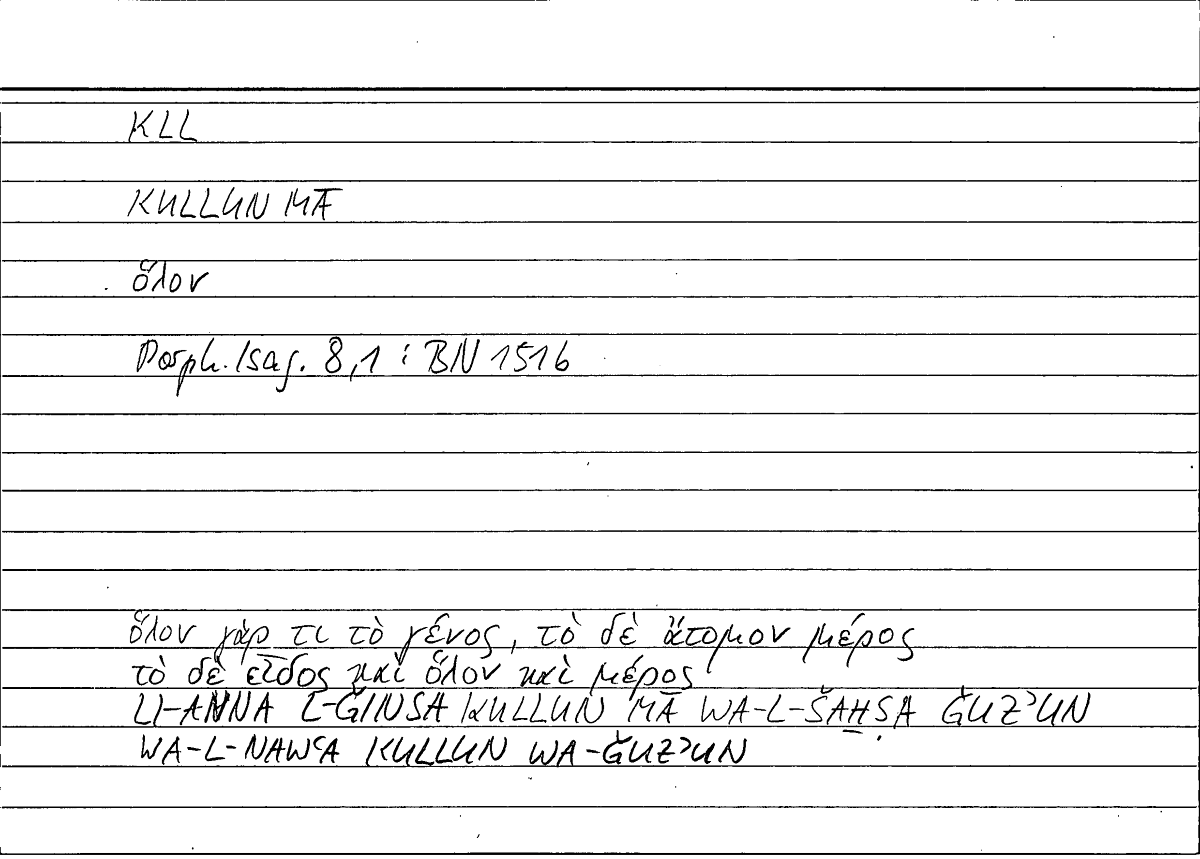 KLL
KULLUN MĀ
ὅλον
Porph. Isag. 8,1 : BN 1516
ὅλον γάρ τι τὸ γένος, τὸ δὲ ἄτομον μέρος
τὸ δὲ εἶδος καὶ ὅλον καὶ μέρος
LI-ANNA L-ĞINSA KULLUN MĀ WA-L-ŠAḪṢA ĞUZʾUN
WA-L-NAWʿA KULLUN WA-ĞUZʾUN